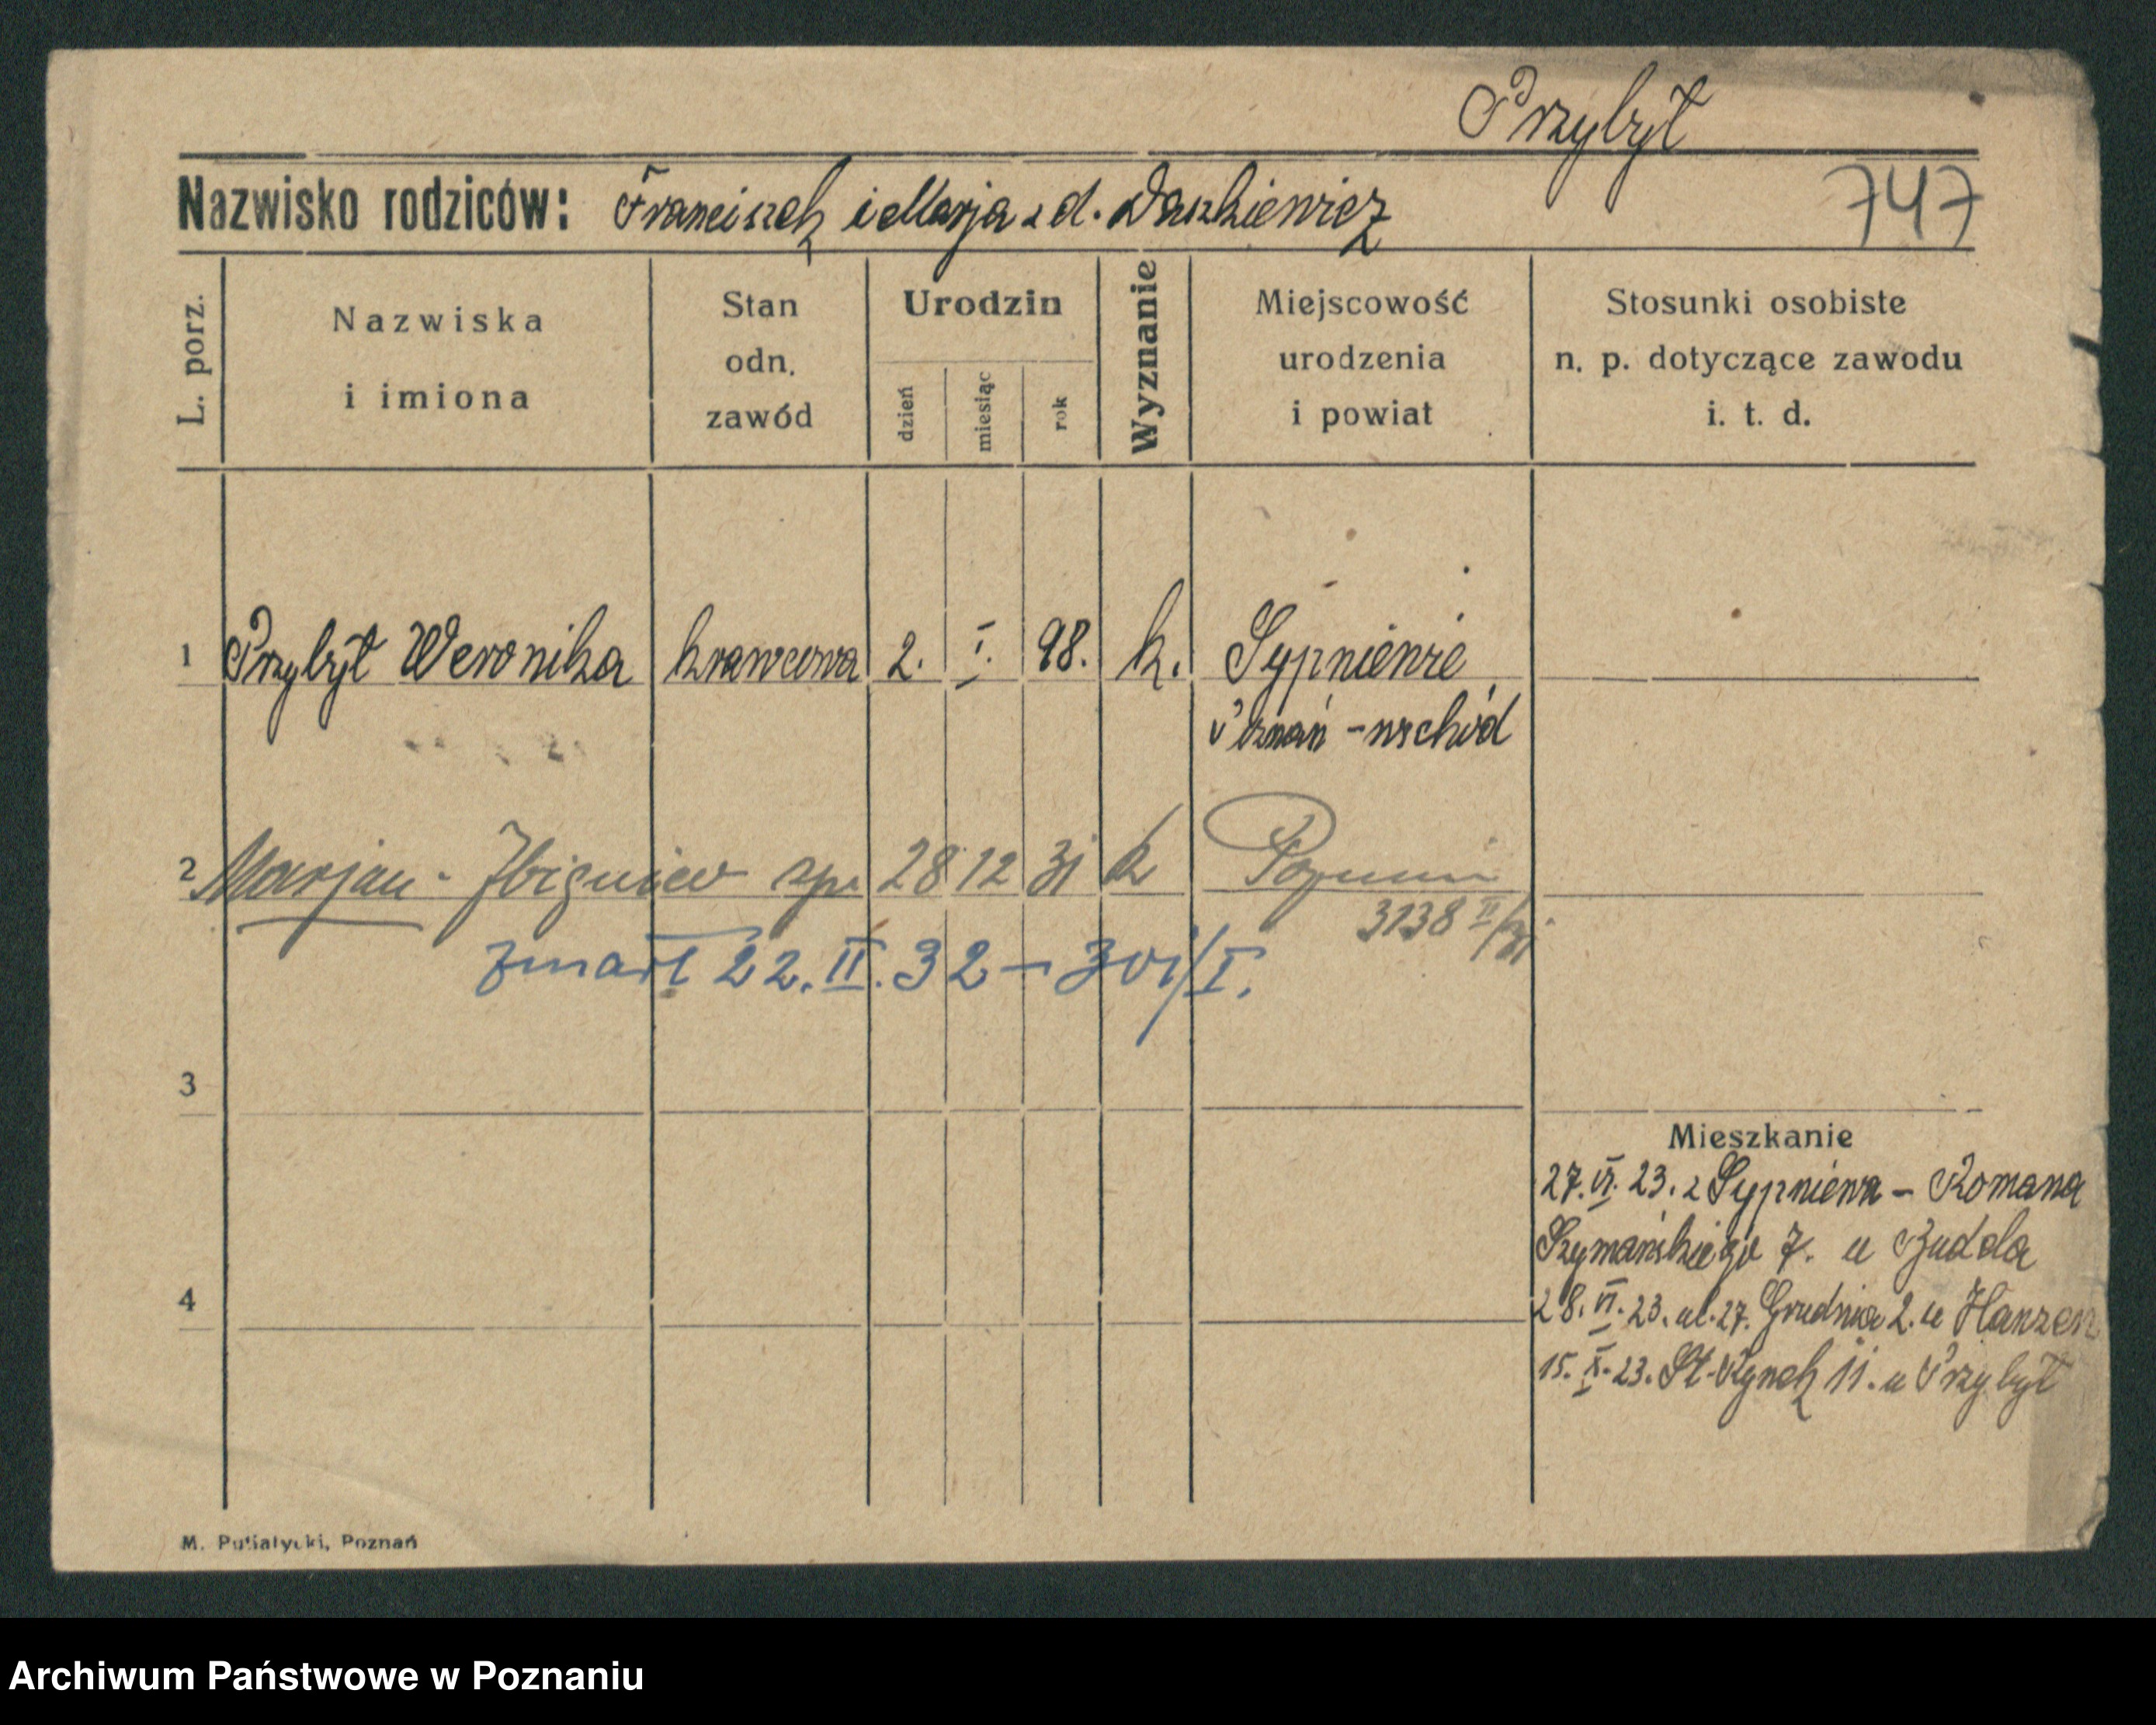 Przybył
Nazwisko rodziców: Franciszek i Marja z d. Daszkiewicz
747
L. porz.
Nazwiska
i imiona
Stan
odn.
zawód
Urodzin
dzień
miesiąc
rok
Wyznanie
Miejscowość
urodzenia
i powiat
Stosunki osobiste
n. p. dotyczące zawodu
i. t. d.
1 Przybył Weronika krawcowa 2. I. 98. k. Sypniewie
Poznań - wschód
2 Marjan - Zbigniew 28 12 31 k Poznań
3138 II/31
zmarł 22. II. 32
3
Mieszkanie
27. VI. 23. z Sypniewa - Romana
Szymańskiego 7. u Budda
4
28. VI. 23. ul. 27. Grudnia 2. u Hanzen
15. X. 23. St. Rynek 11. u Przybył
M. Putiatycki, Poznań
Archiwum Państwowe w Poznaniu